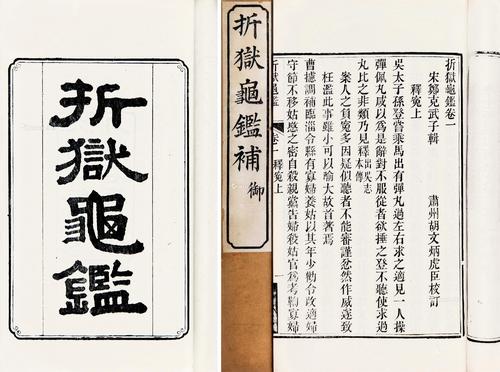 折獄龜鑑
折獄龜鑑補
御
折獄龜鑑卷一
宋鄭克武子輯 肅州胡文炳虎臣校訂
釋冤上
吳太子孫登嘗乘馬出有彈丸過左右求之適見一人操
彈佩丸咸以爲是辭對不服從者欲捶之登不聽使求過
丸比之非類乃見釋出吳志本傳
案人之負冤多因疑似聽者不能審謹忿然作威遂致
枉濫此事雖小可以喻大故首著焉
曹攄調補臨淄令縣有寡婦養姑以其年少勸令改適婦
守節不移姑愍之密自殺親黨告婦殺姑官爲考鞫寡婦
折獄龜鑑 卷一 釋冤上 一